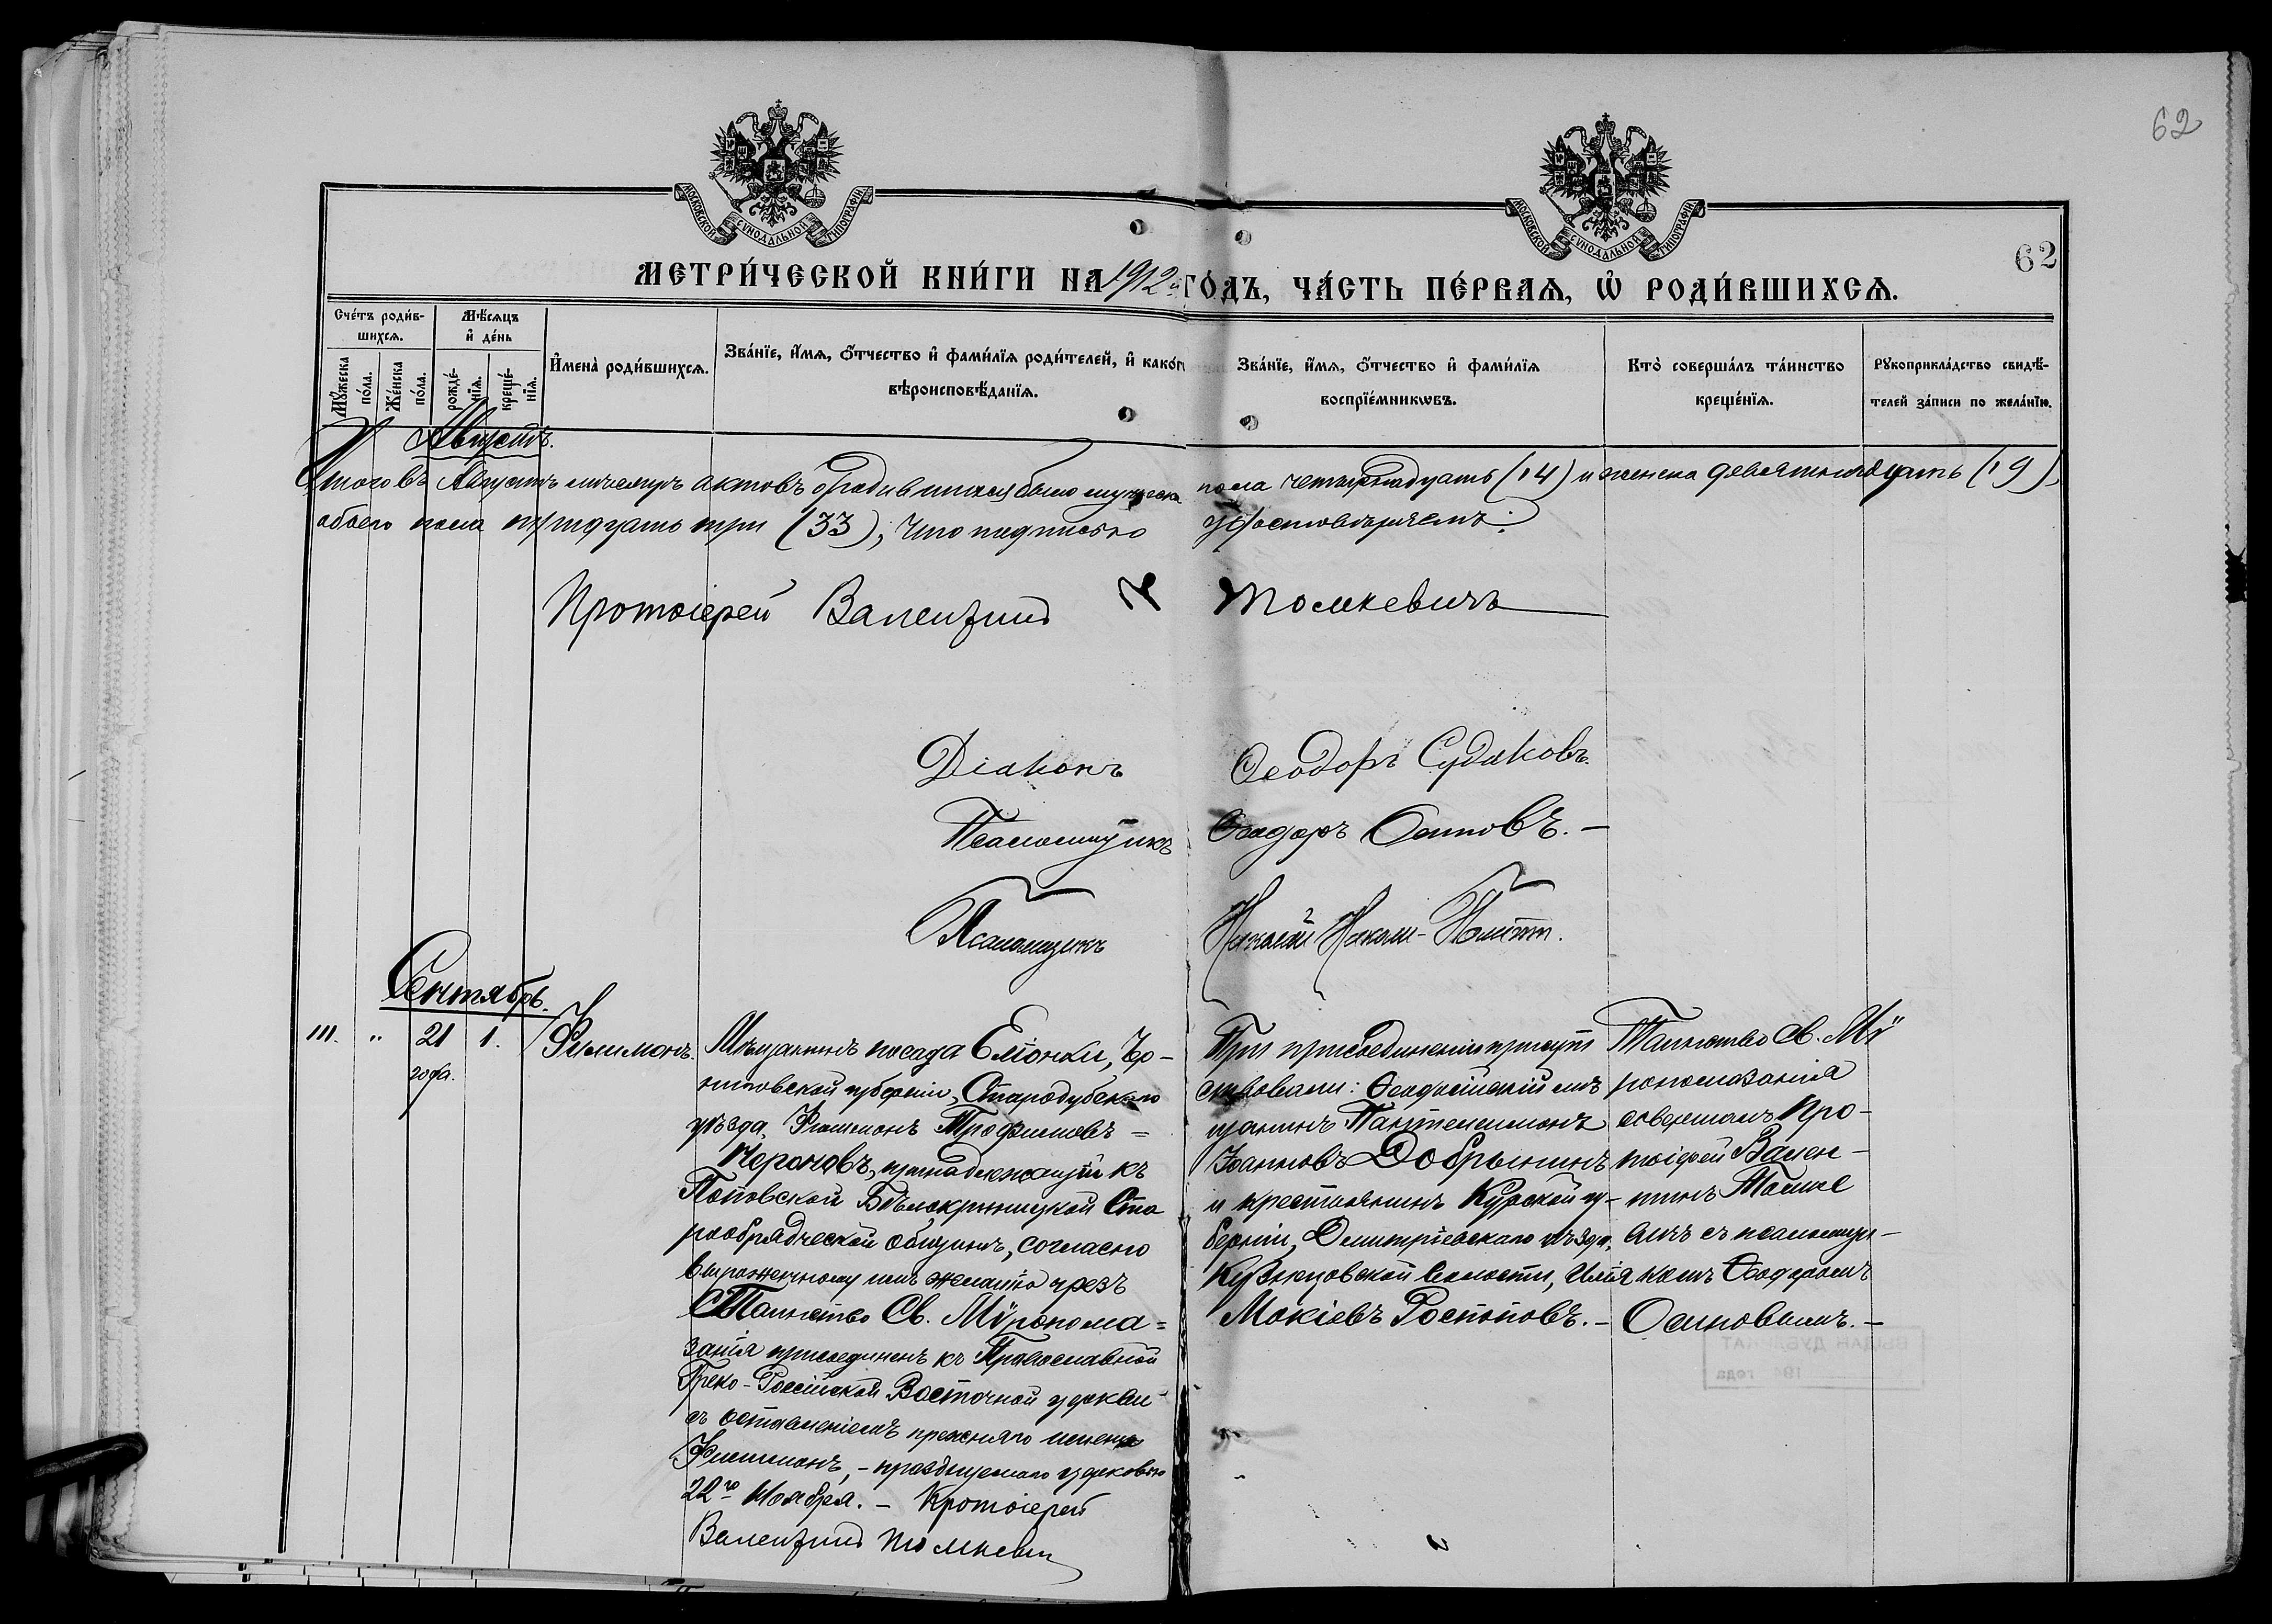 62
МОСКОВСКОЙ СѴНОДАЛЬНОЙ ТИПОГРАФІИ
МОСКОВСКОЙ СѴНОДАЛЬНОЙ ТИПОГРАФІИ
62
МЕТРИ́ЧЕСКОЙ КНИ́ГИ НА 1912 й ГО́ДЪ, ЧА́СТЬ ПЕ́РВАѦ, Ѡ҆ РОДИ́ВШИХСѦ.
Сче́тъ роди́в-
шихсѧ.
Мꙋ́жеска
по́ла.
Же́нска
по́ла.
Мѣ́сѧцъ
и҆ де́нь
рожде́-
нїѧ.
креще́-
нїѧ.
И҆мена̀ роди́вшихсѧ.
Зва́нїе, и҆́мѧ, ѻ҆́тчество и҆ фами́лїѧ роди́телей, и҆ како́гѡ
вѣроисповѣ́данїѧ.
Зва́нїе, и҆́мѧ, ѻ҆́тчество и҆ фами́лїѧ
воспрїе́мникѡвъ.
Кто̀ соверша́лъ та́инство
креще́нїѧ.
Рꙋкоприкла́дство свидѣ́-
телей за́писи по жела́нїю.
Августъ.
Итого въ Августѣ мѣсяцѣ актовъ о родившихся было мужеска пола четырнадцать (14) и женска девятнадцать (19),
обоего пола тридцать три (33), что подписью удостовѣряемъ:
Протоіерей Валентинъ Томкевичъ
Діаконъ Ѳеодоръ Судаковъ.
Псаломщикъ Ѳеодоръ Осиповъ. –
Псаломщикъ Николай
Сентябрь.
111. " 21 года. 1. Филимонъ.
Мѣщанинъ посада Еліонки, Чер-
ниговской губерніи, Стародубскаго
уѣзда, Филимонъ Трофимовъ =
принадлежащій къ
Бѣлокриницкой Ста
рообрядческой общинѣ, согласно
выраженному имъ желанію чрезъ
Таинство Св. Мѵропома=
занія присоединенъ къ Православной
Греко-Россійской Восточной церкви
съ оставленіемъ прежняго имени
Филимонъ, – празднуемаго церковью
22го Ноября. – Протоіерей
Валентинъ Томкевич
При присоединеніи присут
ствовали: Ѳеодосійскій мѣ
щанинъ Пантелеимонъ
Іоанновъ Добрынинъ
и крестьянинъ Курской гу-
берніи, Димитріевскаго уѣзда,
волости, Илія
Мокіевъ Ростоповъ. –
Таинство Св. Мѵ
ропомазанія
совершалъ Про-
тоіерей Вален-
тинъ Томке
вичъ съ псаломщи-
комъ Ѳеодоромъ
Осиповымъ. –
ВЫДАН ДУБЛИКАТ
194 года